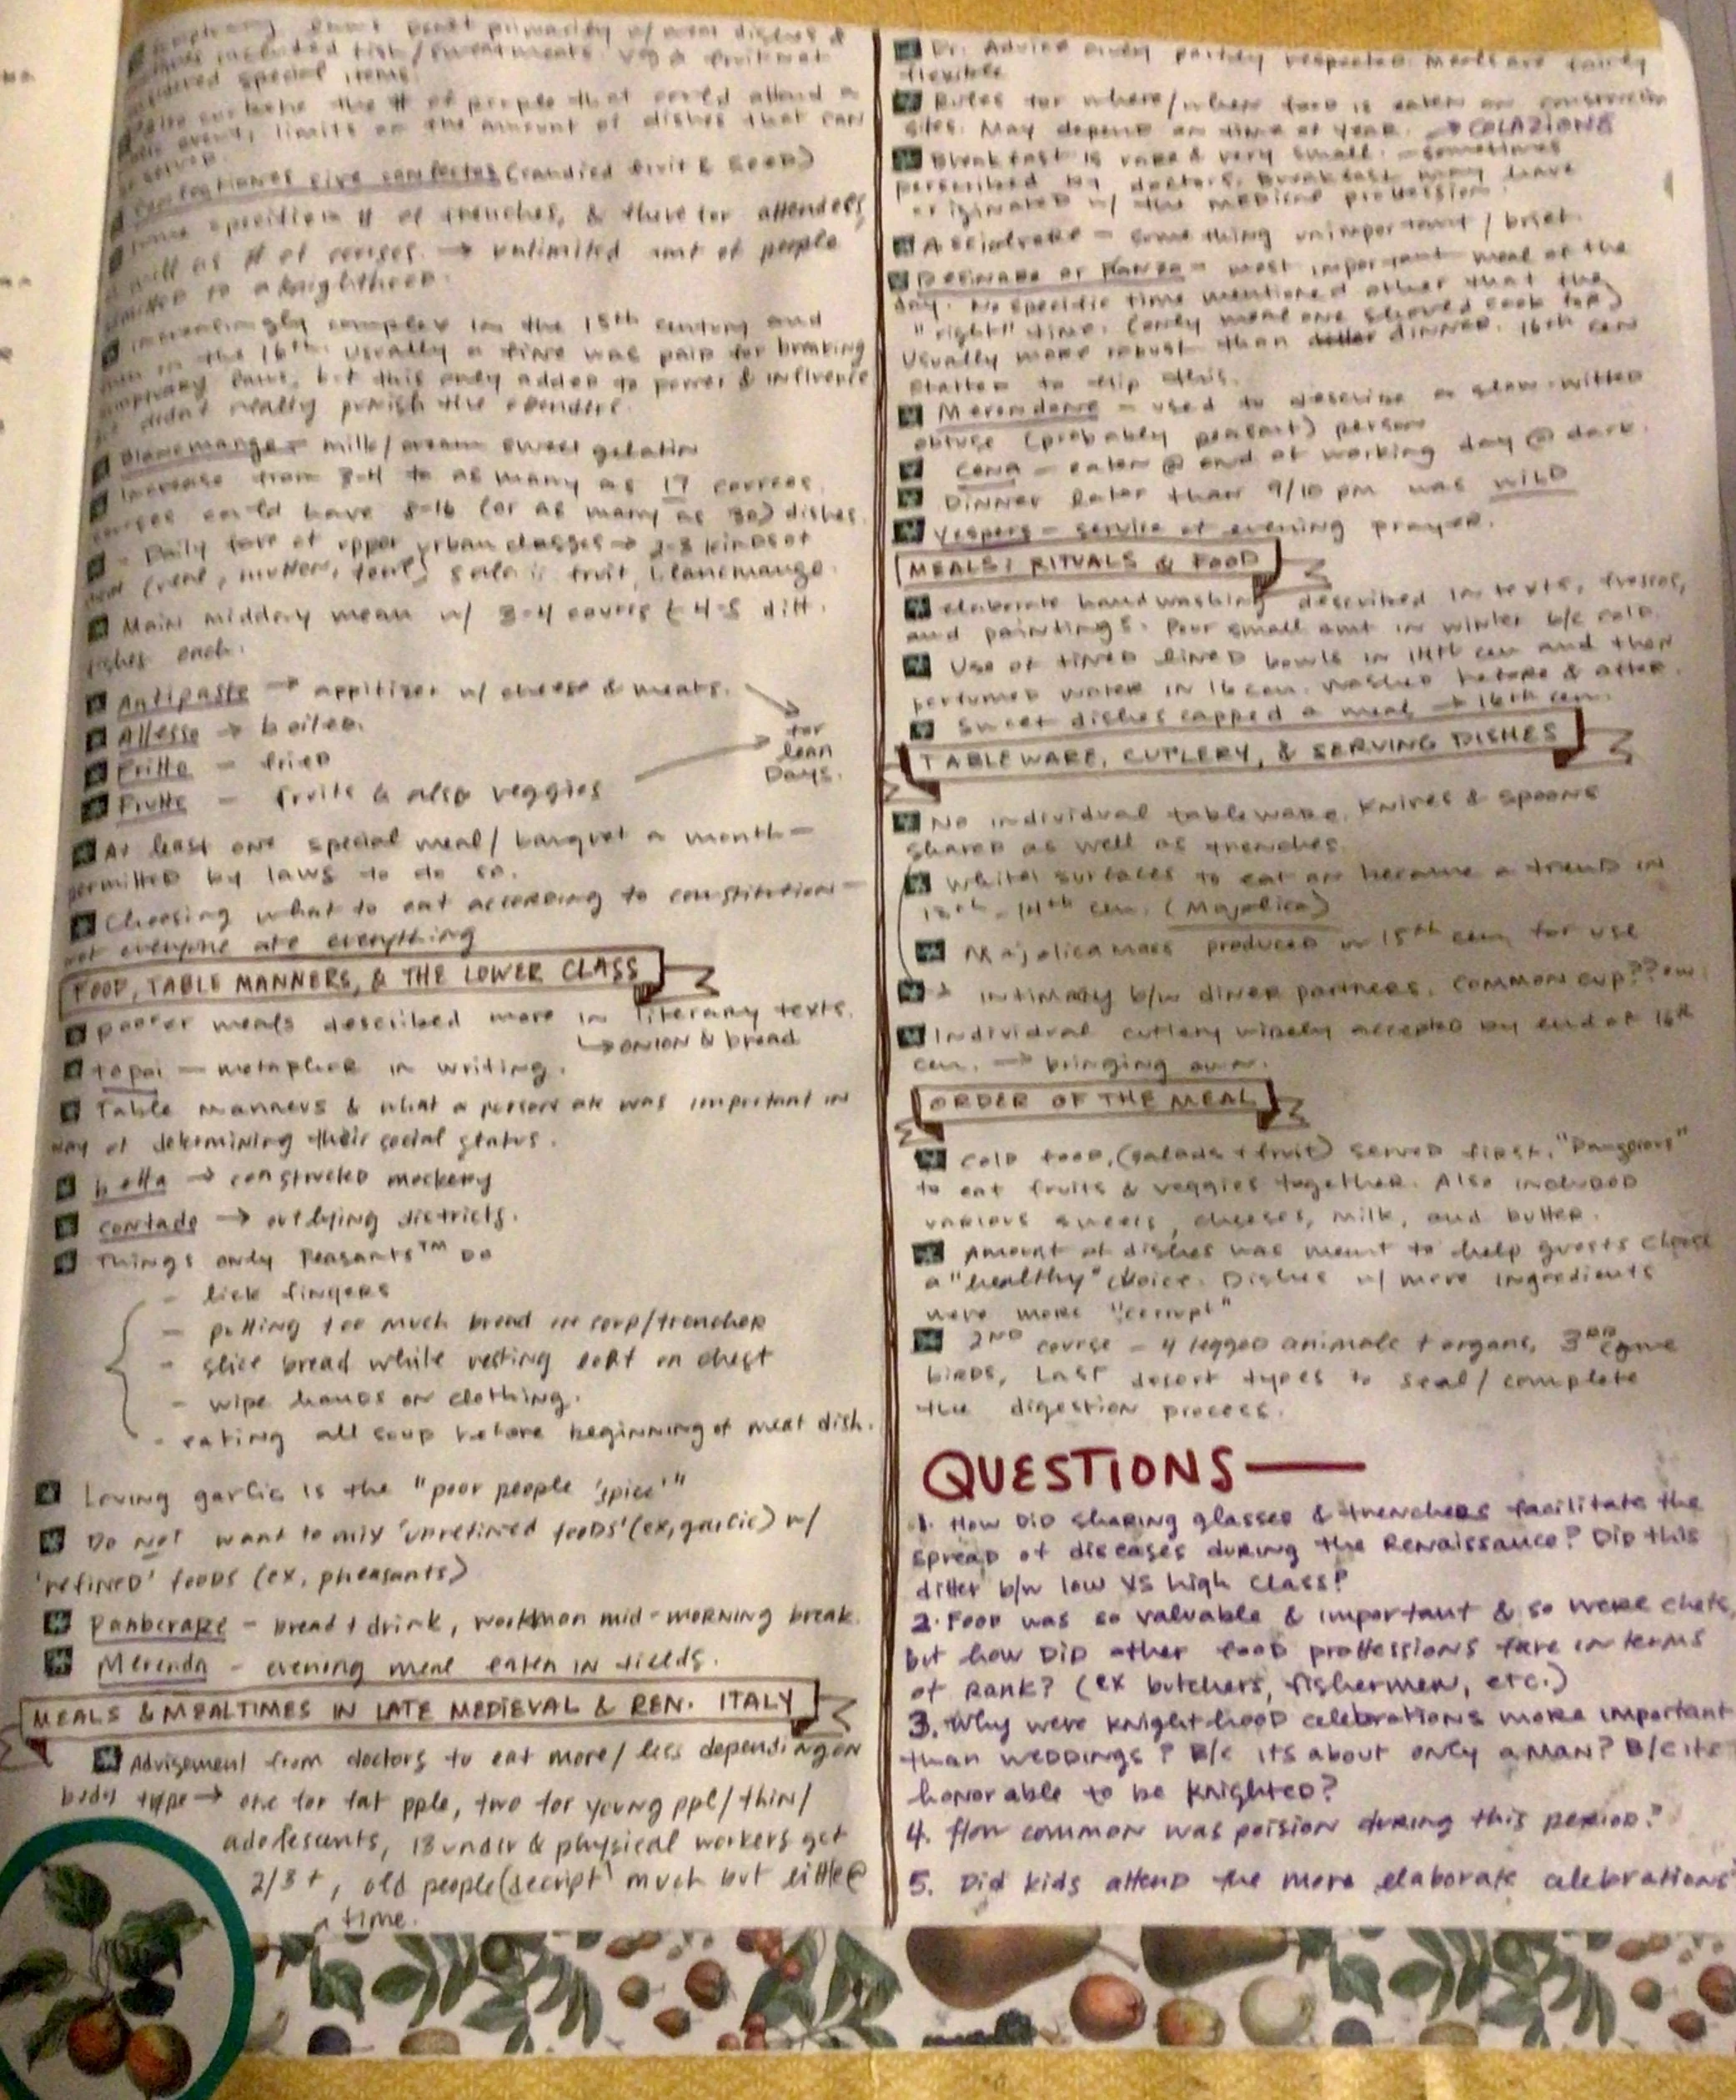 primarily w/ meat dishes &
included fish/sweetmeats. Veg & fruit not
considered special items.
the # of people that could attend a
event, limits on the amount of dishes that can
be served.
confectos (candied fruit & seeds)
# of trenches, & therefor attendees,
as well as # of courses. → unlimited amt of people
to a knighthood.
Increasingly complex in the 15th century and
in the 16th. Usually a fine was paid for breaking
sumptuary laws, but this only added to power & influence
didn't really punish the offenders.
Blancmange – milk/cream sweet gelatin
Increase from 3-4 to as many as 17 courses.
courses could have 8-16 (or as many as 30) dishes.
– Daily fare of upper urban classes → 2-3 kinds of
meat (veal, mutton, fowl) salad, fruit, blancmange.
Main midday mean w/ 3-4 cours & 4-5 diff.
dishes each.
Antipasto → appitizer w/ cheese & meats.
Allesso → boiled.
for
lean
Days.
Fritto – fried
Frutte – fruits & also veggies
At least one special meal/banquet a month –
permitted by laws to do so.
Choosing what to eat according to constitution –
not everyone ate everything
FOOD, TABLE MANNERS, & THE LOWER CLASS
poorer meals described more in literary texts.
↳ onion & bread
topoi – metaphor in writing.
Table manners & what a person ate was important in
way of determining their social status.
beffa → constructed mockery
contado → outlying districts.
Things only Peasants™ Do
- lick fingers
- putting too much bread in soup/trencher
- slice bread while resting loaf on chest
- wipe hands on clothing.
- eating all soup before beginning of meat dish.
Loving garlic is the "poor people 'spice'"
Do not want to mix 'unrefined foods' (ex, garlic) w/
'refined' foods (ex, pheasants)
Panberare – bread + drink, workman mid-morning break.
Merenda – evening meal eaten in fields.
MEALS & MEALTIMES IN LATE MEDIEVAL & REN. ITALY
Advisement from doctors to eat more/less depending on
body type → one for fat pple, two for young ppl/thin/
adolescents, 13 under & physical workers get
2/3+, old people (decript) much but little @
a time.
Dr. Advice only partly respected. Meals are fairly
flexible
Rules for where/when food is eaten on construction
sites. May depend on time of year. → COLAZIONE
Breakfast is rare & very small. – sometimes
perscribed by doctors. Breakfast may have
originated w/ the medical profession.
Asciolvere – something unimportant/brief.
Desinare or Pranzo – most important meal of the
day. No specific time mentioned other that the
"right" time. (only meal one should cook for)
Usually more robust than dinner. 16th cen
started to flip this.
Merendone – used to describe a slow-witted
obtuse (probably peasant) person
Cena – eaten @ end of working day @ dark.
Dinner later than 9/10 pm was wild
Vespers – service of evening prayer.
MEALS: RITUALS & FOOD
elaborate handwashing described in texts, frescos,
and paintings. Pour small amt in winter b/c cold.
Use of lined bowls in 14th cen and then
perfumed water in 16 cen. washed before & after.
Sweet dishes capped a meal → 16th cen.
TABLEWARE, CUTLERY, & SERVING DISHES
No individual tableware. Knives & spoons
shared as well as trenches.
White surfaces to eat on became a trend in
13th-14th cen. (Majolica)
Majolica mass produced in 15th cen for use
→ intimacy b/w diner partners. Common cup?? ew.
Individual cutlery widely accepted by end of 16th
cen. → bringing own.
ORDER OF THE MEAL
Cold food, (salads + fruit) served first. "Dangerous"
to eat fruits & veggies together. Also included
various sweets, cheeses, milk, and butter.
Amount of dishes was meant to help guests choose
a "healthy" choice. Dishes w/ more ingredients
were more "corrupt"
2nd course – 4 legged animals + organs, 3rd
birds, last desert types to seal/complete
the digestion process.
QUESTIONS—
1. How did sharing glasses & trenchers facilitate the
spread of diseases during the Renaissance? Did this
differ b/w low vs high class?
2. Food was so valuable & important & so were chefs,
but how did other food proffessions fare in terms
of rank? (ex butchers, fishermen, etc.)
3. Why were knighthood celebrations more important
than weddings? B/c its about only a man? B/c its
honorable to be knighted?
4. How common was poision during this period?
5. Did kids attend the more elaborate celebrations?